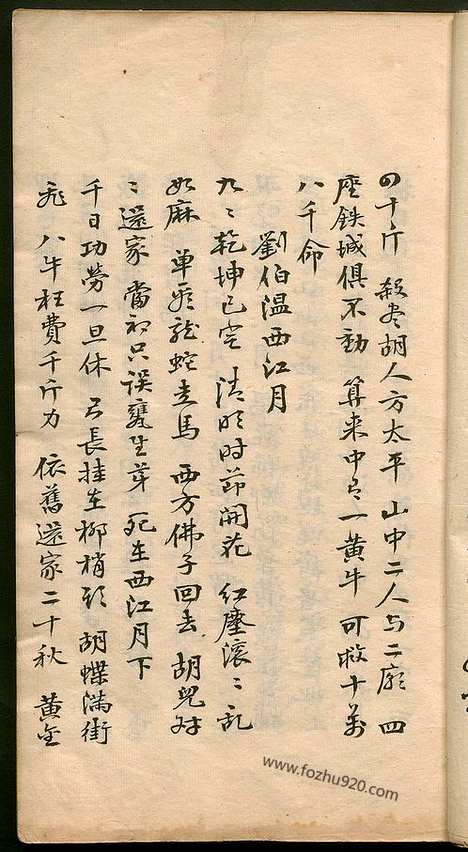 四十斤 殺尽胡人方太平 山中二人与二廟 四
座鉄城俱不動 算来中有一黄牛 可救十萬
八千命
劉伯温西江月
九〻乾坤已定 清明时節開花 红塵滚〻乱
如麻 单看龍蛇走馬 西方佛子回去 胡兒財
〻還家 當初只误甕生芽 死在西江月下
千日功勞一旦休 弓長挂在柳梢頭 胡蝶满街
飛 八牛枉費千斤力 依舊還家二十秋 黄金
www.fozhu920.com